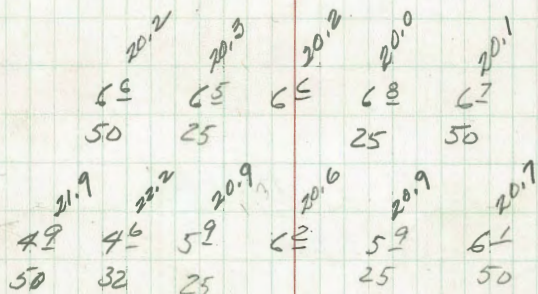 20.2 20.3 20.2 20.0 20.1
6 6 6 5 6 6 6 8 6 7
50 25 25 50
21.9 22.2 20.9 20.6 20.9 20.7
4 9 4 6 5 9 6 2 5 9 6 1
50 32 25 25 50